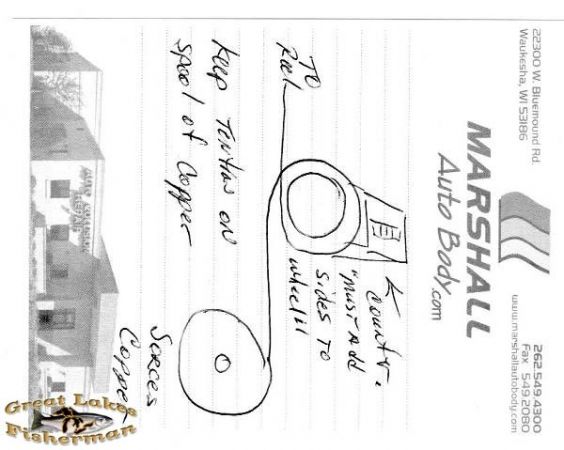 22300 W. Bluemound Rd.
Waukesha, WI 53186
MARSHALL
Auto Body.com
262.549.4300
Fax 549.2080
www.marshallautobody.com
To
Reel
counter.
"must Add
sides to
wheel"
Keep Tention on
spool of Copper
Sorces
Copper
Great Lakes
Fisherman